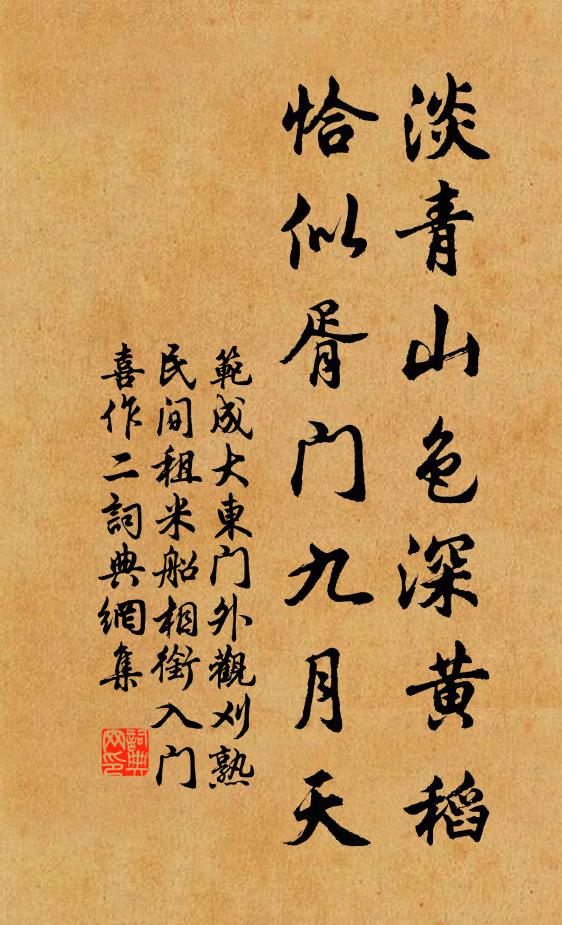 淡青山色深黄稻
恰似胥门九月天
範成大東门外觀刈熟
民间租米船相銜入门
喜作二詞典網集
詞典网印